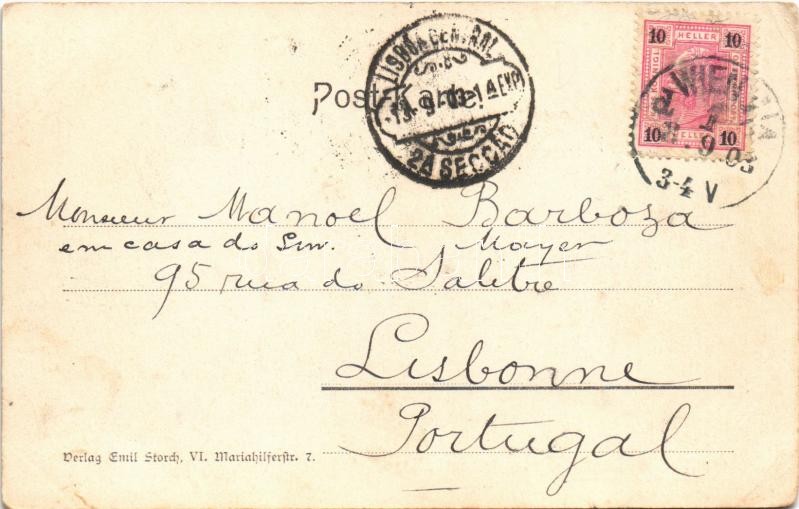 Post-Karte.
LISBOA CENTRAL
13-9-03-1A EXP.
2A SECÇÃO
10 HELLER 10
10 HELLER 10
WIEN
9 03
3-4 V
Monsieur Manoel Barboza
em casa do Snr. Mayer
95 rua do Salitre
Lisbonne
Portugal
Verlag Emil Storch, VI. Mariahilferstr. 7.